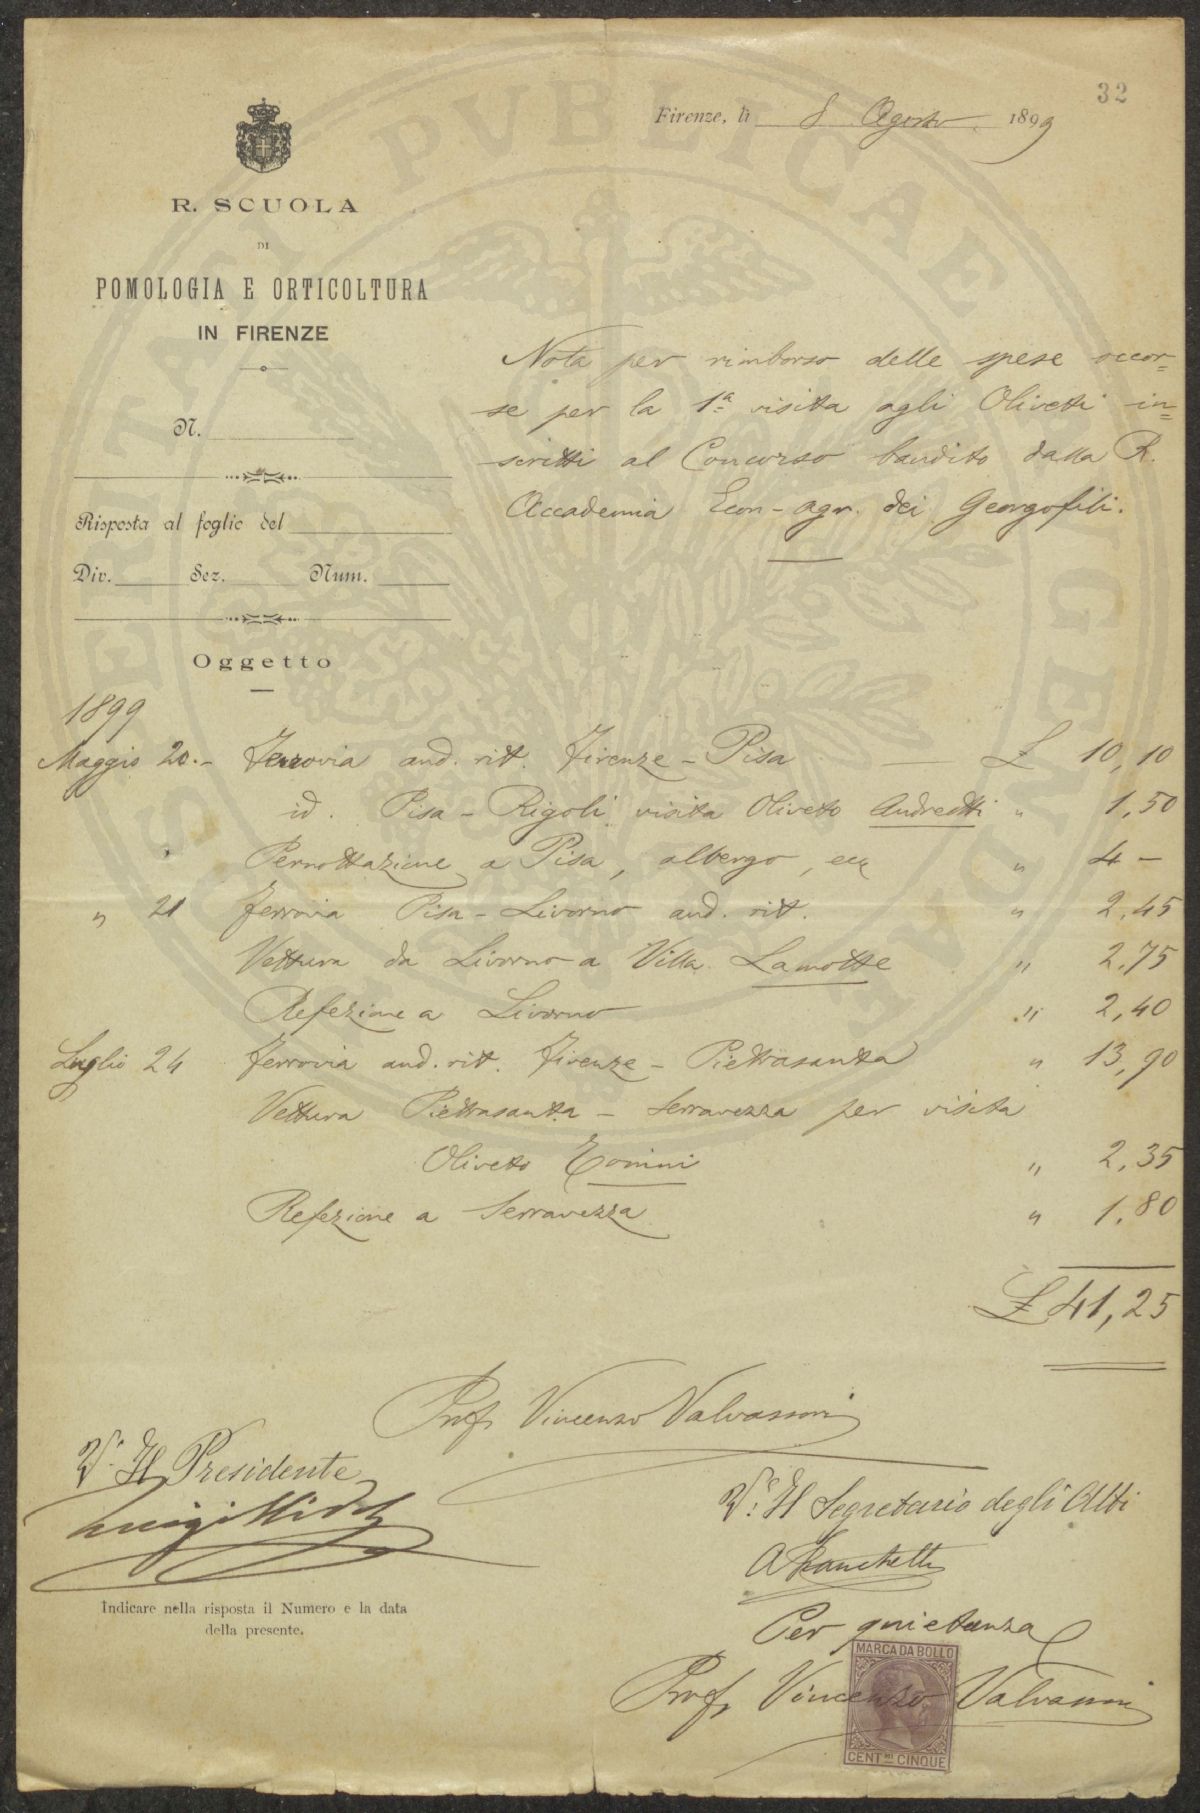 32
Firenze, li 8 Agosto 1899
R. SCUOLA
DI
POMOLOGIA E ORTICOLTURA
IN FIRENZE
N.
Risposta al foglio del
Div. Sez. Num.
Oggetto
Nota per rimborso delle spese occor=
se per la 1ª visita agli Oliveti in=
scritti al Concorso bandito dalla R.
Accademia Econ-agr. dei Georgofili.
1899
Maggio 20.- Ferrovia and. rit. Firenze - Pisa £ 10,10
id. Pisa - Rigoli visita Oliveto Andreotti " 1,50
Pernottazione a Pisa, albergo, ecc " 4 -
" 21 ferrovia Pisa - Livorno and. rit. " 2,45
Vettura da Livorno a Villa Lamotte " 2,75
Refezione a Livorno " 2,40
Luglio 24 ferrovia and. rit. Firenze - Pietrasanta " 13,90
Vettura Pietrasanta - Serravezza per visita
Oliveto Tomini " 2,35
Refezione a Serravezza " 1,80
£ 41,25
Prof Vincenzo Valvassori
V° Il Presidente
Luigi
V° Il Segretario degli Atti
A Franchetti
Per quietanza
MARCA DA BOLLO
Prof Vincenzo Valvassori
CENT.MI CINQUE
Indicare nella risposta il Numero e la data
della presente.